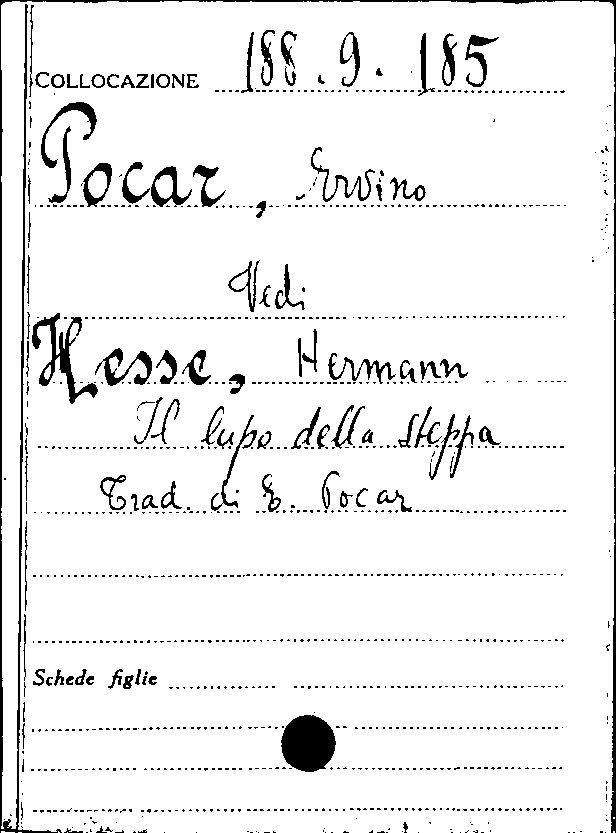 COLLOCAZIONE 188.9.185
Pocar, Ervino
Vedi
Hesse, Hermann
Il lupo della steppa
Trad. di E. Pocar
Schede figlie